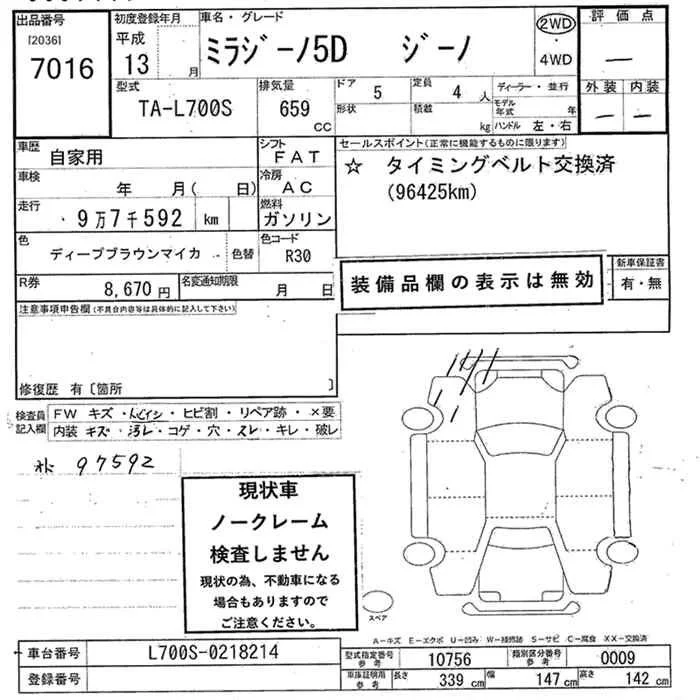 出品番号
[2036]
7016
初度登録年月
平成
13 月
車名・グレード
ミラジーノ5D ジーノ
2WD
・
4WD
評価点
—
外装 内装
— —
型式
TA-L700S
排気量
659
CC
ドア 5
定員 4 人
形状
積載 kg
ディーラー・並行
モデル年式 年
ハンドル 左・右
車歴
自家用
シフト
FAT
車検
年 月( 日)
冷房
AC
走行
9万7千592 km
燃料
ガソリン
色
ディープブラウンマイカ
色替
色コード
R30
R券
8,670円
名変通知期限
月 日
セールスポイント(正常に機能するものに限ります)
☆ タイミングベルト交換済
(96425km)
装備品欄の表示は無効
新車保証書
有・無
注意事項申告欄(不具合内容等は具体的に記入して下さい)
修復歴 有〔箇所 〕
検査員記入欄
FW キズ・ ・ヒビ割・リペア跡・×要
内装 キズ・汚レ・コゲ・穴・スレ・キレ・破レ
97592
現状車
ノークレーム
検査しません
現状の為、不動車になる
場合もありますので
ご注意ください。
スペア
A-キズ E-エクボ U-凹み W-補修跡 S-サビ C-腐食 XX-交換済
車台番号
L700S-0218214
登録番号
型式指定番号
参考
10756
類別区分番号
参考
0009
車庫証明用
参考
長さ 339 cm
幅 147 cm
高さ 142 cm